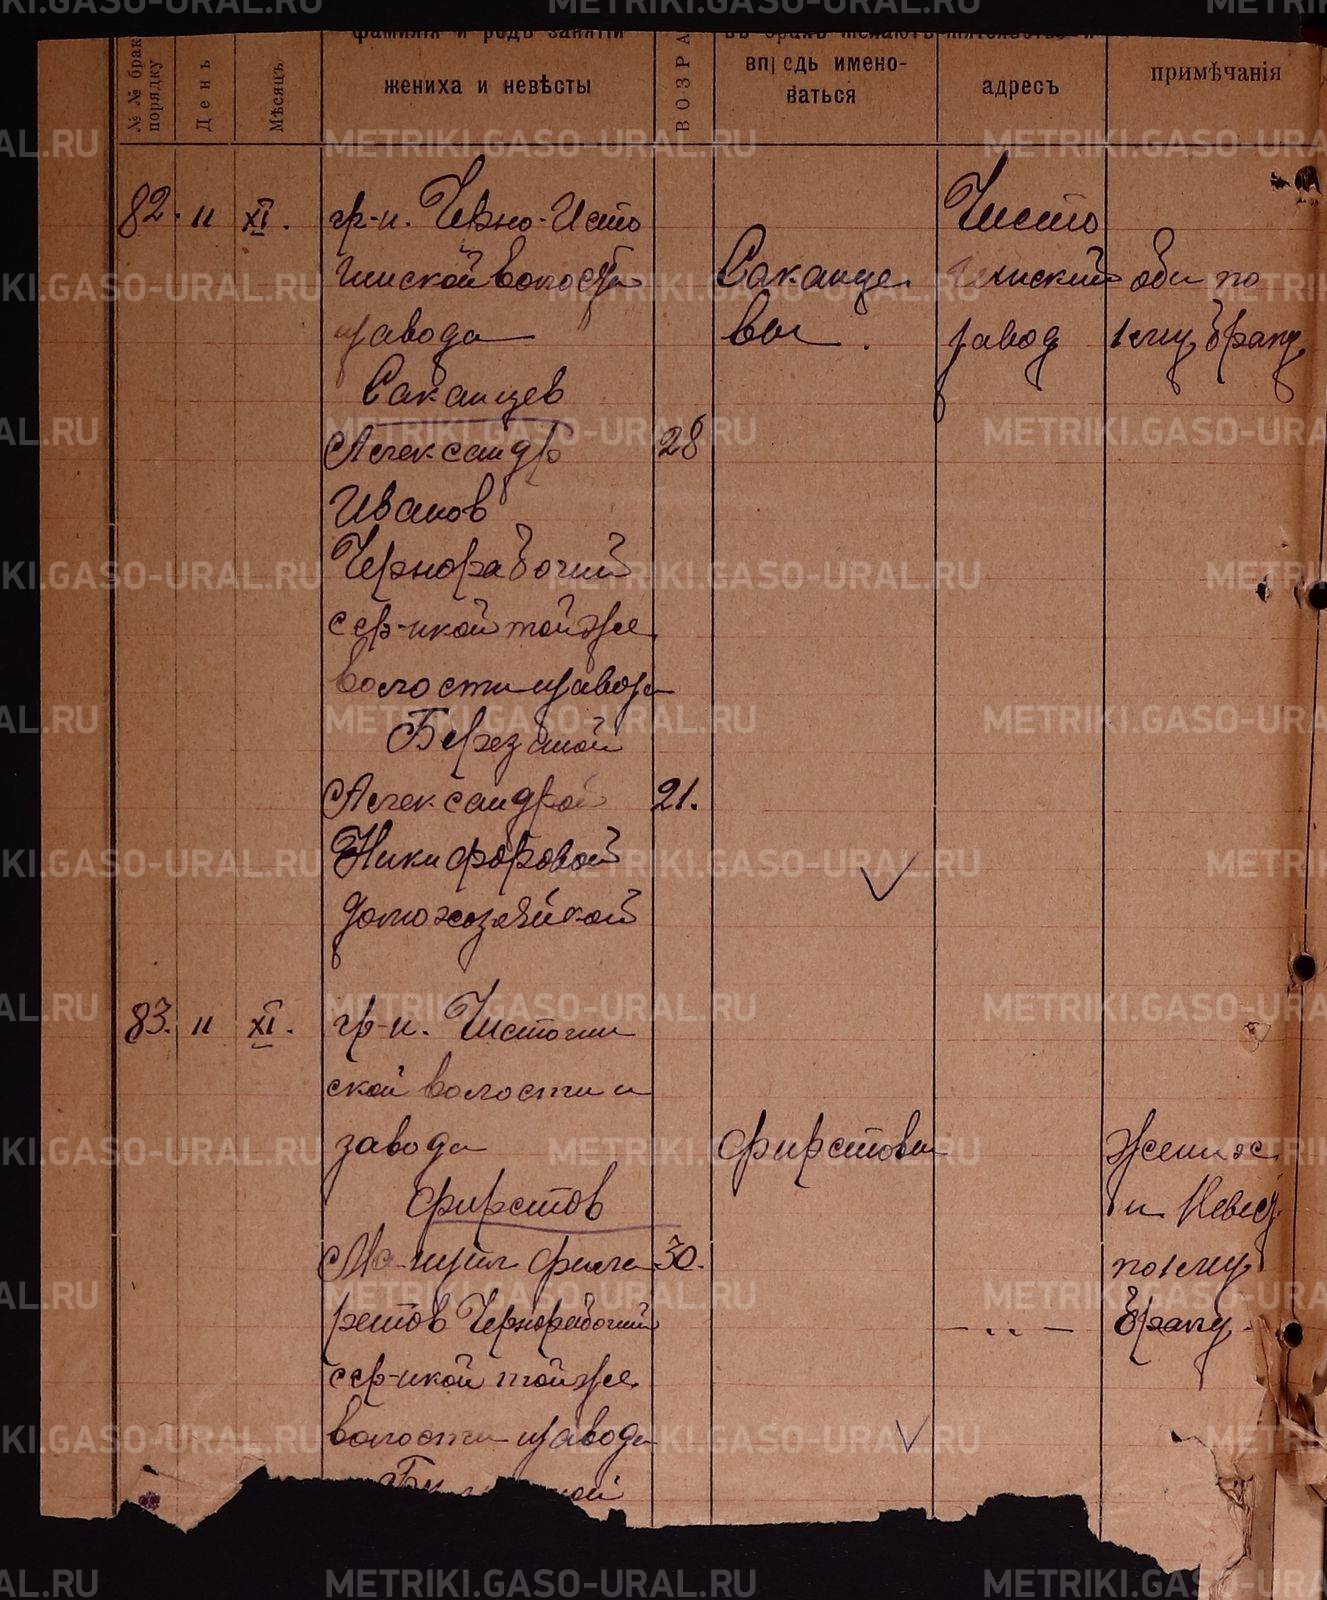 № № брак порядку
День
Мѣсяцъ
фамилія и родъ занятій
жениха и невѣсты
ВОЗРА
въ бракъ желаютъ
впредь имено-
ваться
адресъ
примѣчанія
82. 11 XI.
гр-н. Черно-Исто
чинской волости
и завода
Саканцев
Александр 28
Иванов
Чернорабочий
с гр-нкой той же
волости и завода
Березиной
Александрой 21.
Никифоровой
домохозяйкой
Саканце
вы.
Чисто
чинский
завод
оби по
1му браку
83. 11 XI.
гр-н. Чисточин
ской волости и
завода
Фирстов
Мануил Филa 30.
ретов Чернорабочий
с гр-нкой той же
волости и завода
Фирстовы
— . . —
Жених
и Невес.
по 1му
браку
METRIKI.GASO-URAL.RU